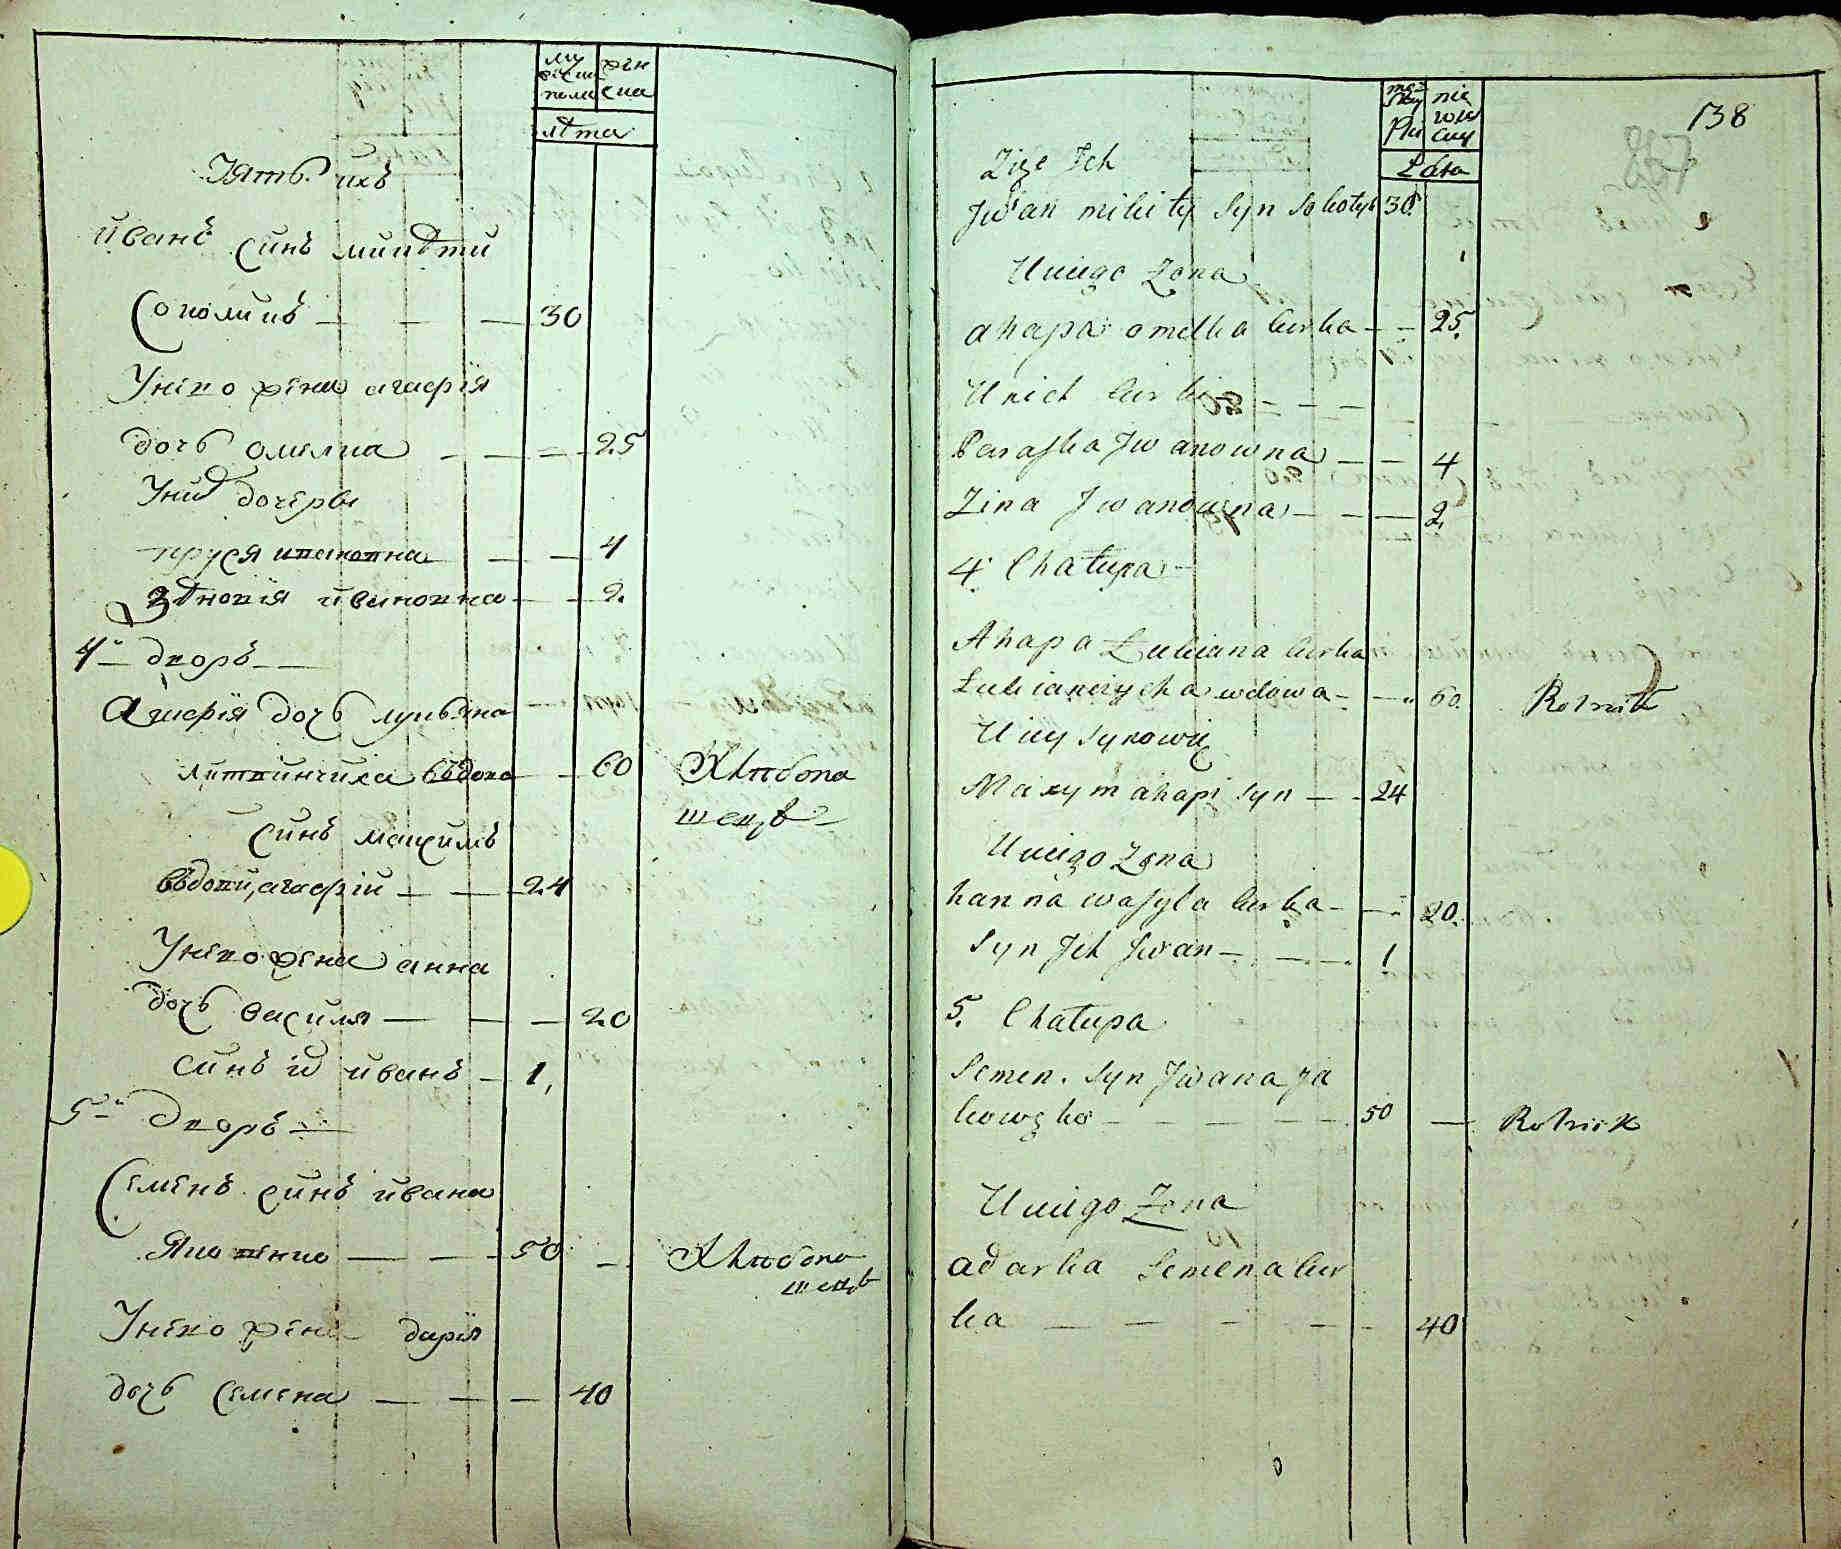 му
жеска
пола
жен
ска
лѣта
Зять ихъ
иванъ синъ микѣти
Соколикъ 30
Унего жена агафія
дочъ омелка 25
Унихъ дочери
пруся ивановна 4
Зѣновія ивановна 2.
4й дворъ
Агафія дочъ лукѣяна
литвинчиха вдова 60 Хлѣбопа
шецъ
Синъ максимъ
вдови, агафіи 24
Унего жена анна
дочъ василя 20
синъ их иванъ 1,
5й дворъ
Семенъ синъ ивана
Яковенко 50 Хлѣбопа
шецъ
Унего жена дарія
дочъ семена 40
138
męz
ski
Płci
nie
wie
sciey
Lata
Zięc Ich
Jwan mikity Syn Sokotyk 30.
U niego Zona
ahapa omelka curka 25.
U nich curki
Paraska Jwanowna 4
Zina Jwanowna 2,
4. Chatupa
Ahapa Łukiana curka
Łukianczycha wdowa 60. Rolnik
U niey Synowie
Maxym ahapi Syn 24
U niego Zona
hanna wasyla curka 20.
Syn Ich Jwan 1
5. Chatupa
Semen. Syn Jwana Ja
kowęko 50 Rolnik
U niego Zona
adarka Semena cur
ka 40